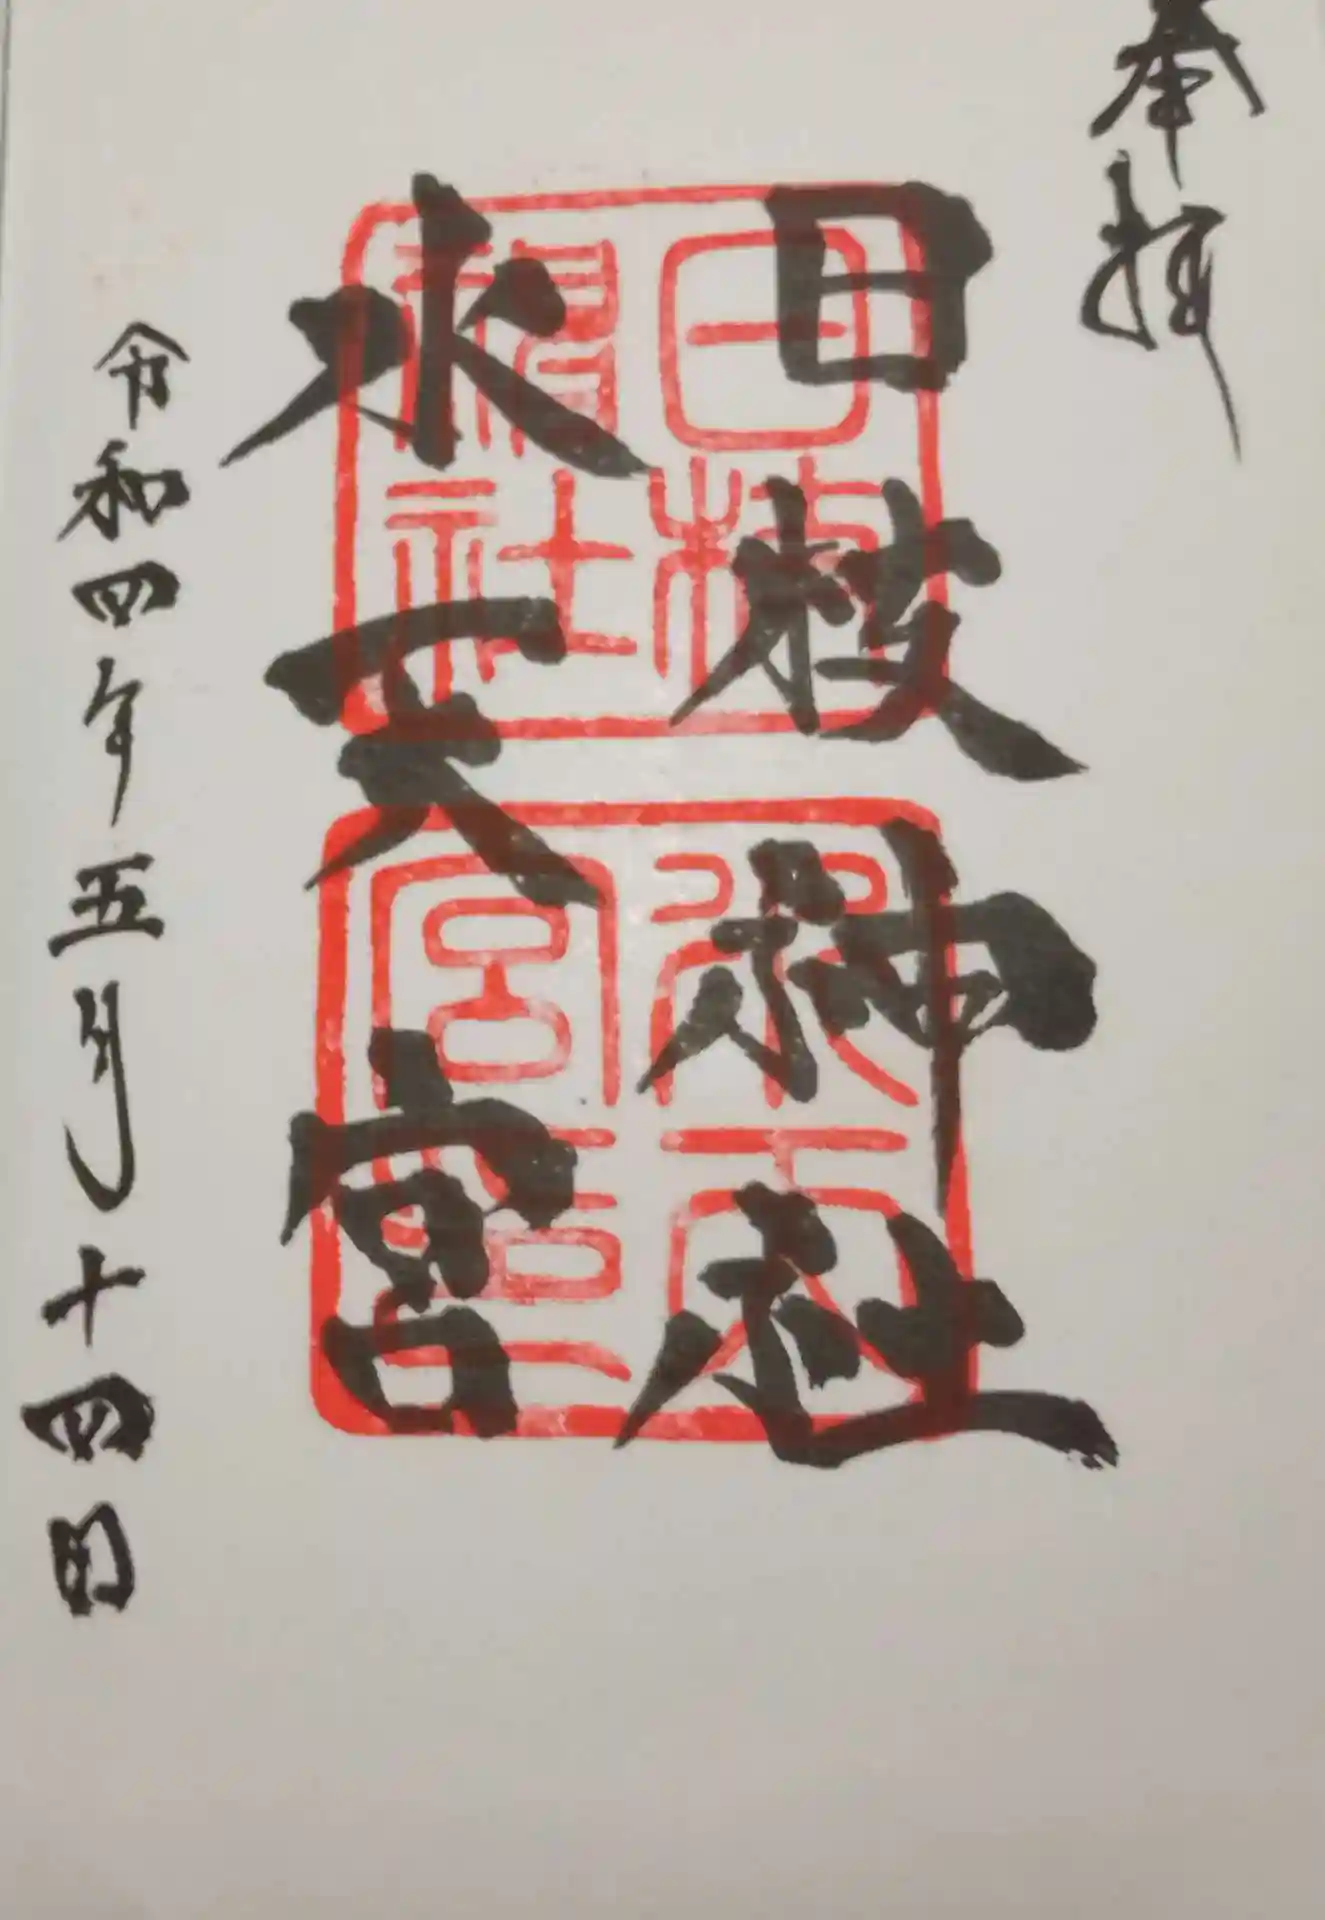 奉拝
日枝神社
水天宮
令和四年五月十四日
日枝神社
水天宮印